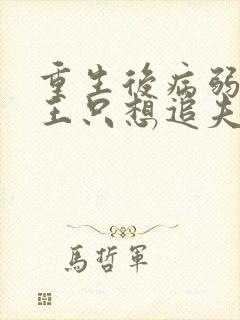 重生後病弱
王只想追夫
馬哲軍